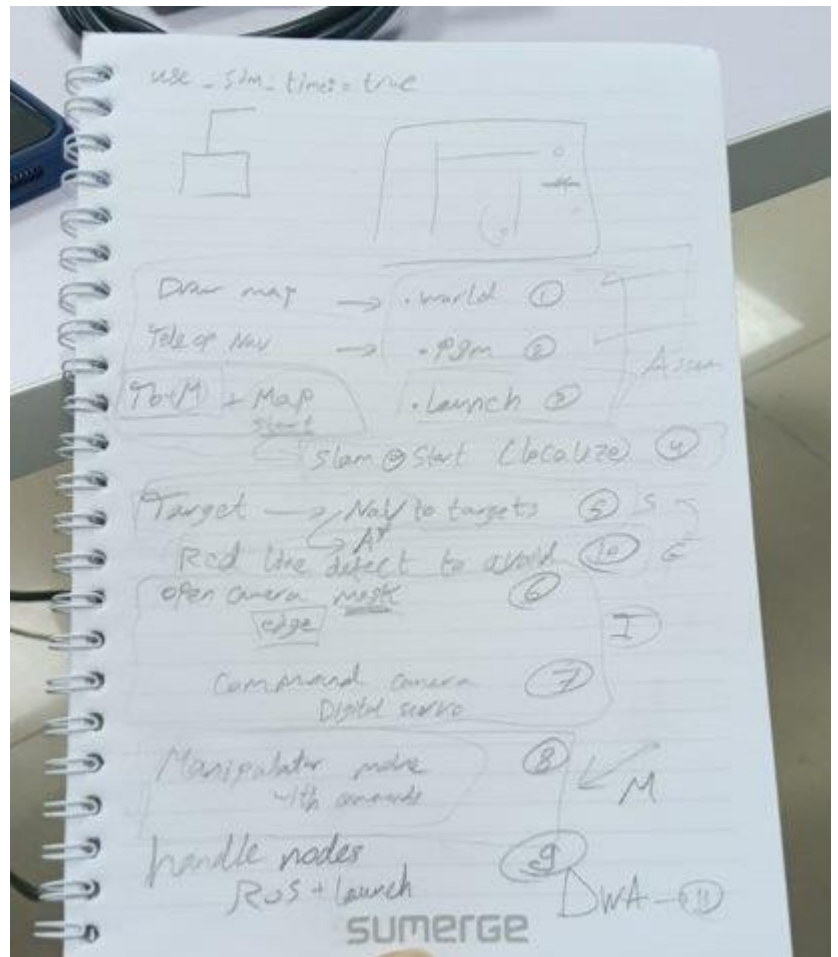 use_sim_time:= true
Draw map → .world ①
Teleop Nav → .pgm ②
+ Map .Launch ③
start
Slam @ Start (localize) ④
Target → Nav to targets ⑤ S
A*
Red line detect to avoid ⑩
open camera mask ⑥
edge
I
Command camera ⑦
Digital servo
Manipulator move ⑧
with commands
M
handle nodes ⑨
ROS + Launch
DWA - ⑪
sumerge